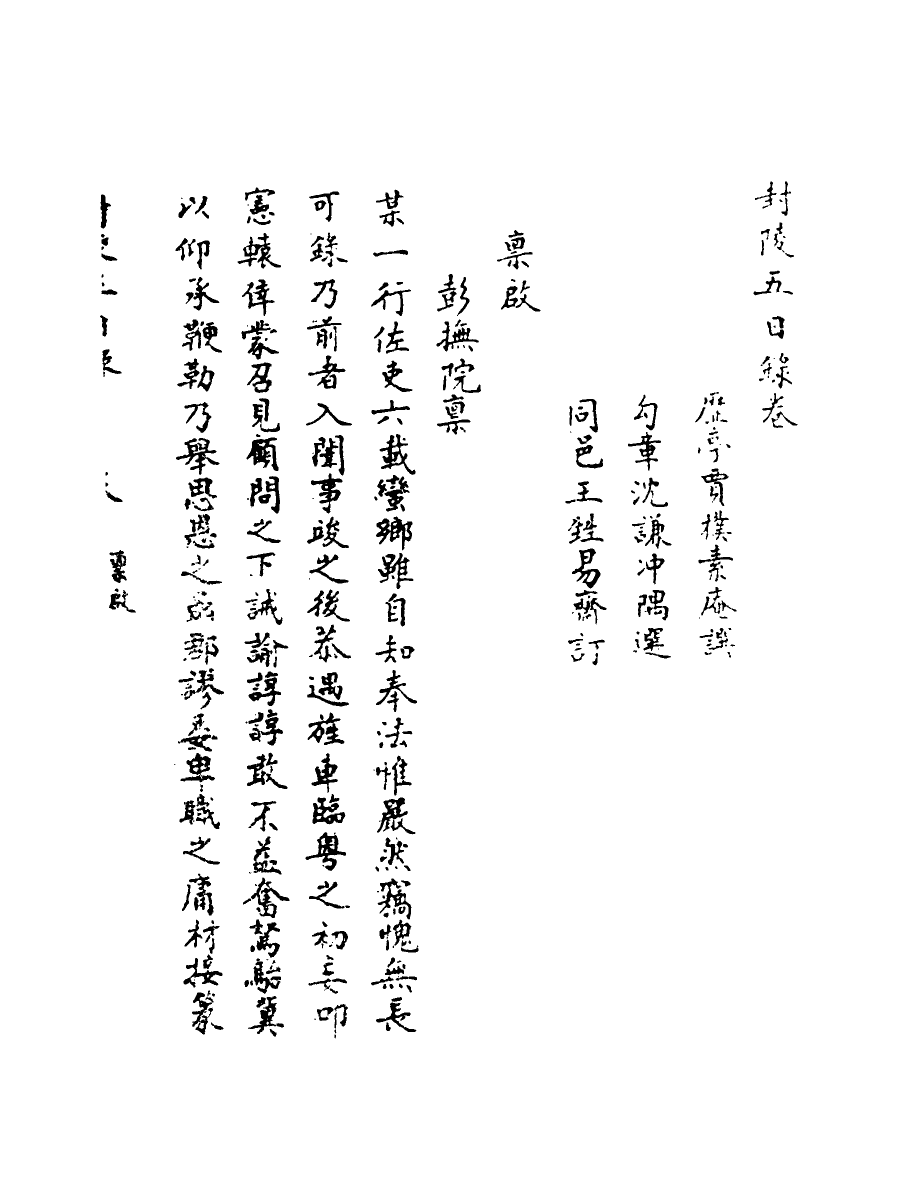 封陵五日錄卷
歴亭賈樸素庵譔
勾章沈謙冲隅選
同邑王甡易齋訂
稟啟
彭撫院稟
某一行佐吏六載蠻鄉雖自知奉法惟嚴然竊愧無長
可錄乃前者入闈事竣之後恭遇旌車臨粵之初妄叩
憲轅倖蒙召見顧問之下誡諭諄諄敢不益奮駑駘冀
以仰承鞭勒乃舉思恩之嚴郡謬委卑職之庸材接篆
稟啟